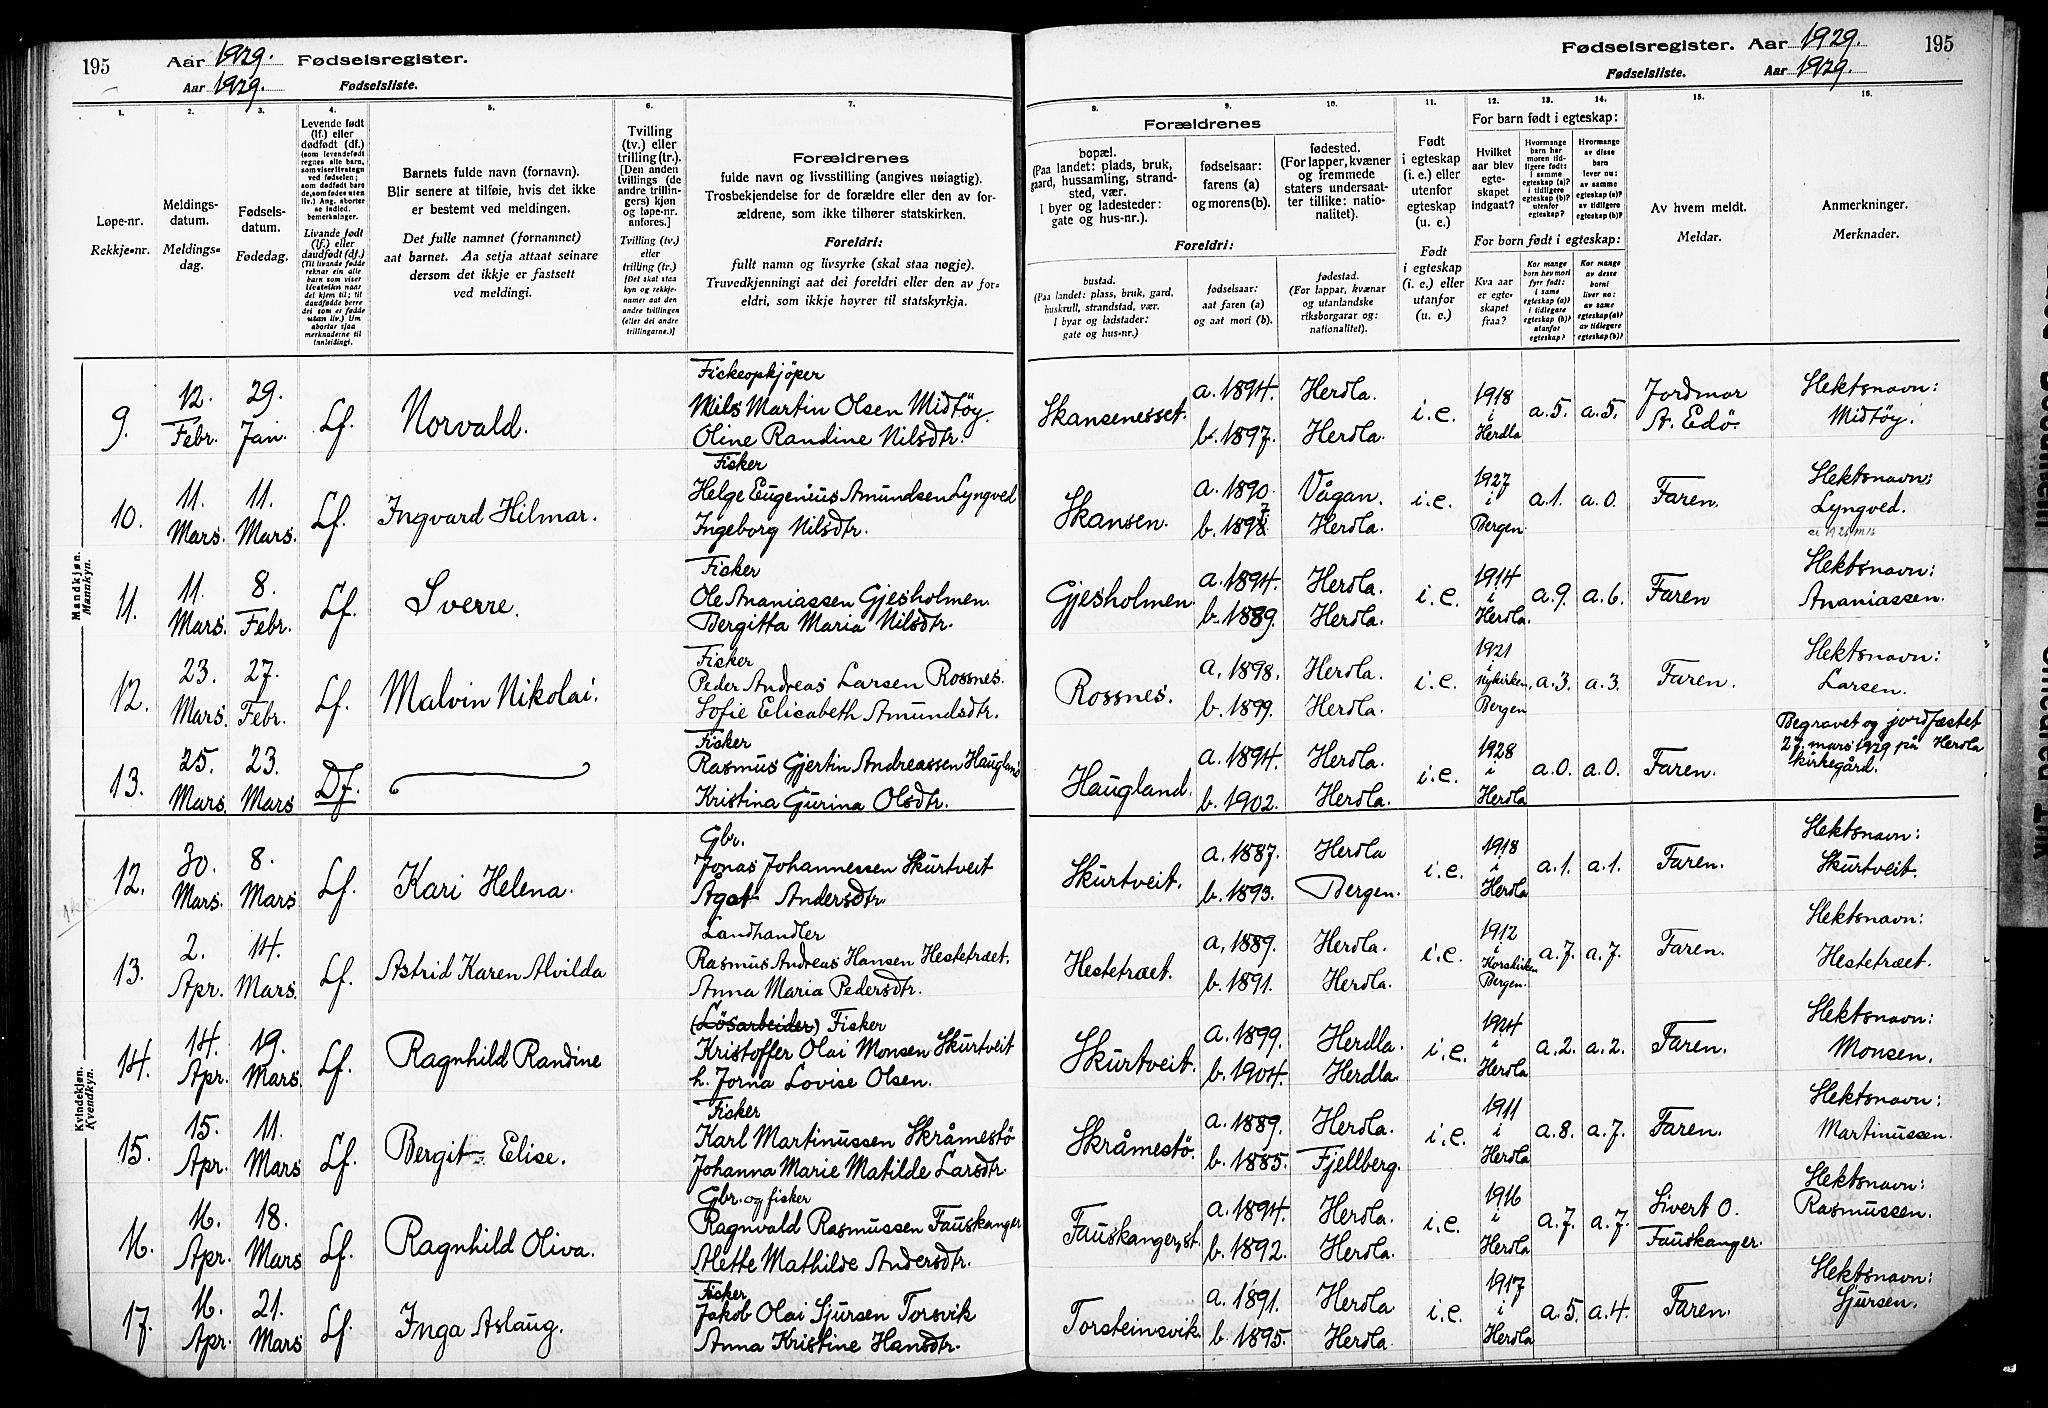 195 Aar 1929. Fødselsregister.
Aar 1929. Fødselsliste.
Fødselsregister. Aar 1929. 195
Fødselsliste. Aar 1929.
1. 2. 3. 4. 5. 6. 7.
Løpe-nr.
Rekkje-nr.
Meldings-
datum.
Meldings-
dag.
Fødsels-
datum.
Fødedag.
Levende født
(lf.) eller
dødfødt (df.)
Livande født
(lf.) eller
daudfødt (df.)
Barnets fulde navn (fornavn).
Blir senere at tilføie, hvis det ikke
er bestemt ved meldingen.
Det fulle namnet (fornamnet)
aat barnet. Aa setja attaat seinare
dersom det ikkje er fastsett
ved meldingi.
Tvilling
(tv.) eller
trilling (tr.).
[Den anden
tvillings (de
andre trillin-
gers) kjøn
og løpe-nr.
anføres.]
Tvilling (tv.)
eller
trilling (tr.)
[Det skal staa
kyn og rekkje-
numer aat den
andre tvillingen
(eller dei andre
trillingarne.)]
Forældrenes
fulde navn og livsstilling (angives nøiagtig).
Trosbekjendelse for de forældre eller den av for-
ældrene, som ikke tilhører statskirken.
Foreldri:
fullt namn og livsyrke (skal staa nøgje).
Truvedkjenningi aat dei foreldri eller den av for-
eldri, som ikkje høyrer til statskyrkja.
8. 9. 10. 11. 12. 13. 14. 15. 16.
Forældrenes
bopæl.
(Paa landet: plads, bruk,
gaard, hussamling, strand-
sted, vær.
I byer og ladesteder:
gate og hus-nr.).
fødselsaar:
farens (a)
og morens (b).
fødested.
(For lapper, kvæner
og fremmede
staters undersaat-
ter tillike: natio-
nalitet).
Foreldri:
bustad.
(Paa landet: plass, bruk, gard,
huskrull, strandstad, vær.
I byar og ladstader:
gate og hus-nr.)
fødselsaar:
aat faren (a)
og aat mori (b).
fødestad.
(For lappar, kvænar
og utanlandske
riksborgarar og:
nationalitet).
Født
i egteskap
(i. e.) eller
utenfor
egteskap
(u. e.)
Født
i egteskap
(i. e.) eller
utanfor
(u. e.)
For barn født i egteskap:
Hvilket
aar blev
egte-
skapet
indgaat?
Hvormange
barn har
moren tid-
ligere født:
i samme
egteskap (a)?
i tidligere
egteskap (b)?
utenfor
egteskap?
Hvormange
av disse
barn
lever nu:
av samme
egteskap (a)?
av tidligere
egteskap (b)?
For born født i egteskap:
Kva aar
er egte-
skapet
fraa?
Kor mange
born hev mori
fyrr født:
i same
egteskap (a)?
i tidlegare
egteskap (b)?
utanfor
egteskap?
Kor mange
av desse
borni
liver no:
av same
egteskap (a)?
av tidlegare
egteskap (b)?
Av hvem meldt.
Meldar.
Anmerkninger.
Merknader.
Mandkjøn.
Mannkyn.
9. 12. Febr. 29. Jan. Lf. Norvald.
Fiskeopkjøper
Nils Martin Olsen Midtøy.
Oline Randine Nilsdtr.
Skansenesset. a. 1894. Herdla. i.e. 1918 i Herdla a.5. a.5. Jordmor A. Edö. Slektsnavn: Midtøy.
b. 1897. Herdla.
10. 11. Mars. 11. Mars. Lf. Ingvard Hilmar.
Fisker
Helge Eugenius Amundsen Lyngved
Ingeborg Nilsdtr.
Skansen. a. 1890. Vågan. i.e. 1927 i Bergen a.1. a.0. Faren. Slektsnavn: Lyngved.
b. 1897 Herdla.
11. 11. Mars. 8. Febr. Lf. Sverre.
Fisker
Ole Ananiassen Gjesholmen.
Bergitta Maria Nilsdtr.
Gjesholmen. a. 1894. Herdla. i.e. 1914 i Herdla. a.9. a.6. Faren Slektsnavn: Ananiassen.
b. 1889. Herdla.
12. 23. Mars. 27. Febr. Lf. Malvin Nikolai.
Fisker
Peder Andreas Larsen Rossnes.
Sofie Elisabeth Amundsdtr.
Rossnes. a. 1898. Herdla. i.e. 1921 i Nykirken, Bergen a.3. a.3. Faren. Slektsnavn: Larsen.
b. 1899. Herdla.
13. 25. Mars. 23. Mars Df.
Fisker
Rasmus Gjertin Andreassen Haugland
Kristina Gurina Olsdtr.
Haugland. a. 1894. Herdla. i.e. 1928 i Herdla a.0. a.0. Faren. Begravet og jordfæstet 27. mars 1929 på Herdla kirkegård.
b. 1902. Herdla.
Kvindekjøn.
Kvendkyn.
12. 30. Mars. 8. Mars Lf. Kari Helena.
Gbr.
Jonas Johannessen Skurtveit
Ågot Andersdtr.
Skurtveit. a. 1887. Herdla i.e. 1918 i Herdla a.1. a.1. Faren. Slektsnavn: Skurtveit.
b. 1893. Bergen.
13. 2. Apr. 14. Mars. Lf. Astrid Karen Alvilda
Landhandler
Rasmus Andreas Hansen Hestetræet.
Anna Maria Pedersdtr.
Hestetræet. a. 1889. Herdla. i.e. 1912 i Korskirken Bergen. a.7. a.7. Faren. Slektsnavn: Hestetræet.
b. 1891. Herdla.
14. 14. Apr. 19. Mars. Lf. Ragnhild Randine
(Lösarbeider) Fisker
Kristoffer Olai Monsen Skurtveit
h. Jorna Lovise Olsen.
Skurtveit. a. 1899. Herdla. i.e. 1924 i Herdla a.2. a.2. Faren. Slektsnavn: Monsen.
b. 1904. Herdla.
15. 15. Apr. 11. Mars Lf. Bergit Elise.
Fisker
Karl Martinussen Skråmestö
Johanna Marie Matilde Larsdtr.
Skråmestö. a. 1889. Herdla. i.e. 1911 i Herdla a.8. a.7. Faren. Slektsnavn: Martinussen.
b. 1885. Fjellberg.
16. 16. Apr. 18. Mars Lf. Ragnhild Oliva.
Gbr. og fisker
Ragnvald Rasmussen Fauskanger
Alette Mathilde Andersdtr.
Fauskanger, st. a. 1894. Herdla. i.e. 1916 i Herdla a.7. a.7. Sivert O. Fauskanger. Slektsnavn: Rasmussen.
b. 1892. Herdla.
17. 16. Apr. 21. Mars Lf. Inga Aslaug.
Fisker
Jakob Olai Sjursen Torsvik
Anna Kristine Hansdtr.
Torsteinsvik. a. 1891. Herdla i.e. 1917 i Herdla a.5 a.4. Faren. Slektsnavn: Sjursen.
b. 1895. Herdla.